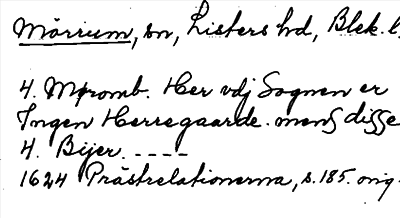 Mörrum, sn, Listers hd, Blek. l.
4. Møromb. Her vdj Sognen er
Ingen Herregaarde. mens disse
4. Bijer. ----
1624 Prästrelationerna, s. 185. orig.